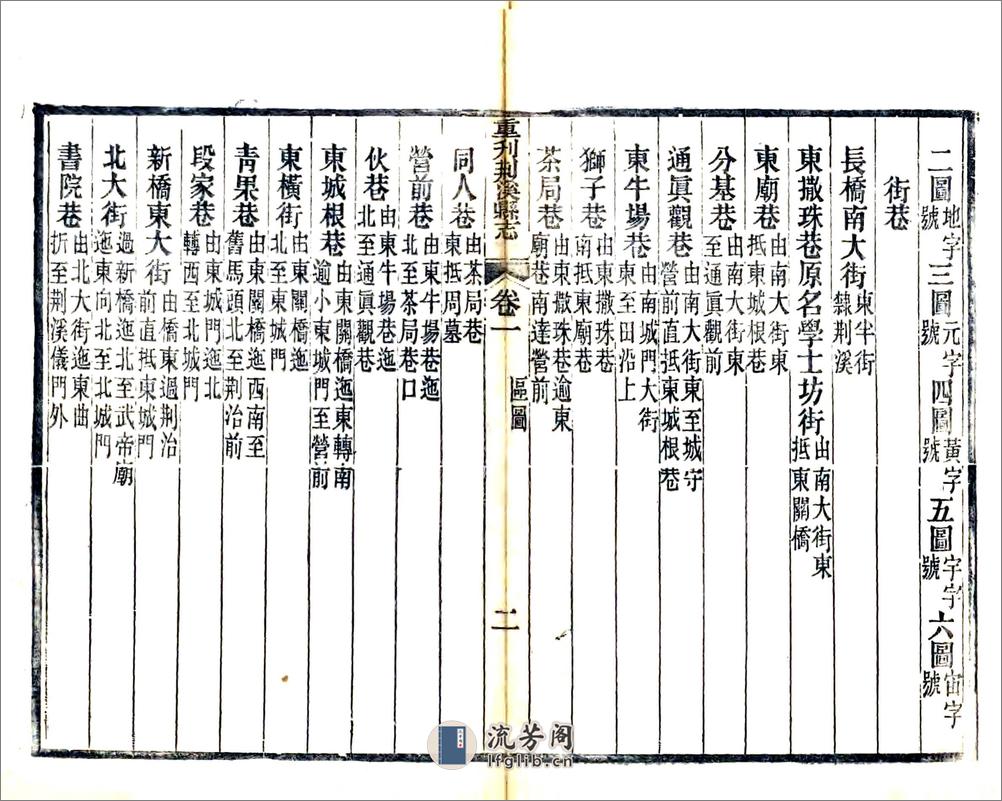 二圖地字號三圖元字號四圖黃字號五圖宇字號六圖宙字號
街巷
長橋南大街東半街隸荆溪
東撒珠巷原名學士坊街由南大街東抵東關橋
東廟巷由南大街東抵東城根巷
分基巷由南大街東至通眞觀前
通眞觀巷由南大街東至城守營前直抵東城根巷
東牛場巷由南城門大街東至田沿上
獅子巷由東撒珠巷南抵東廟巷
茶局巷由東撒珠巷逾東廟巷南達營前
重刊荆溪縣志
卷一
區圖
二
同人巷由茶局巷東抵周墓
營前巷由東牛場巷迤北至茶局巷口
伙巷由東牛場巷迤北至通眞觀巷
東城根巷由東關橋迤東轉南逾小東城門至營前
東橫街由東關橋迤北至東城門
靑果巷由東關橋迤西南至舊馬頭北至荆治前
段家巷由東城門迤北轉西至北城門
新橋東大街由橋東過荆治前直抵東城門
北大街過新橋迤北至武帝廟迤東向北至北城門
書院巷由北大街迤東曲折至荆溪儀門外
流芳阁
lfglib.cn